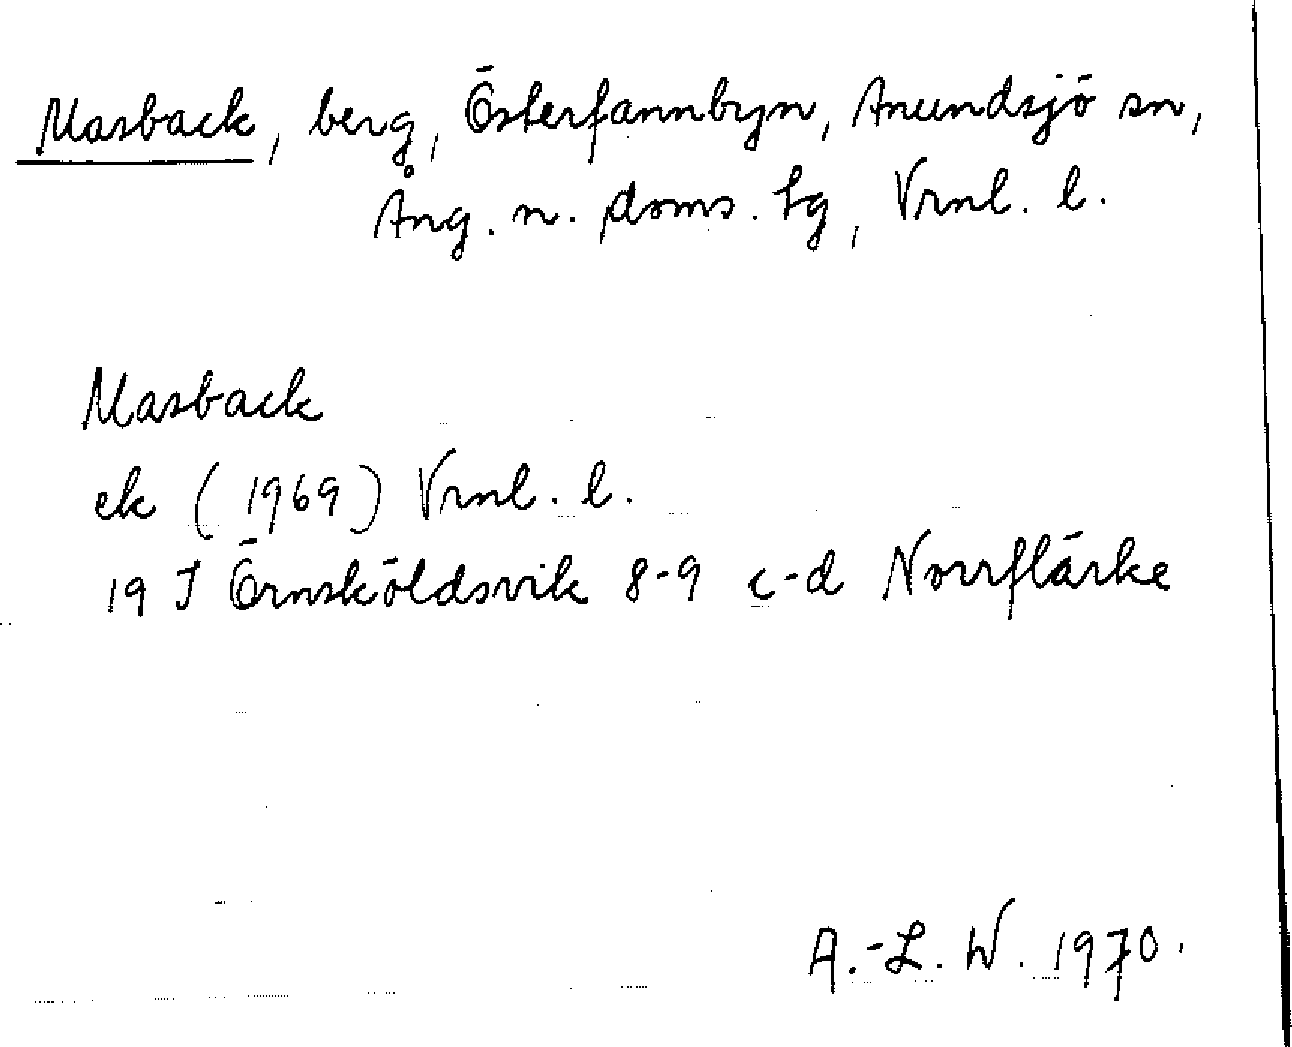 Masback, berg, Österfannbyn, Anundsjö sn,
Ång. n. doms. tg, Vrnl. l.
Masback
ek (1969) Vrnl. l.
19 J Örnsköldsvik 8-9 c-d Norrflärke
A.-L. W. 1970.